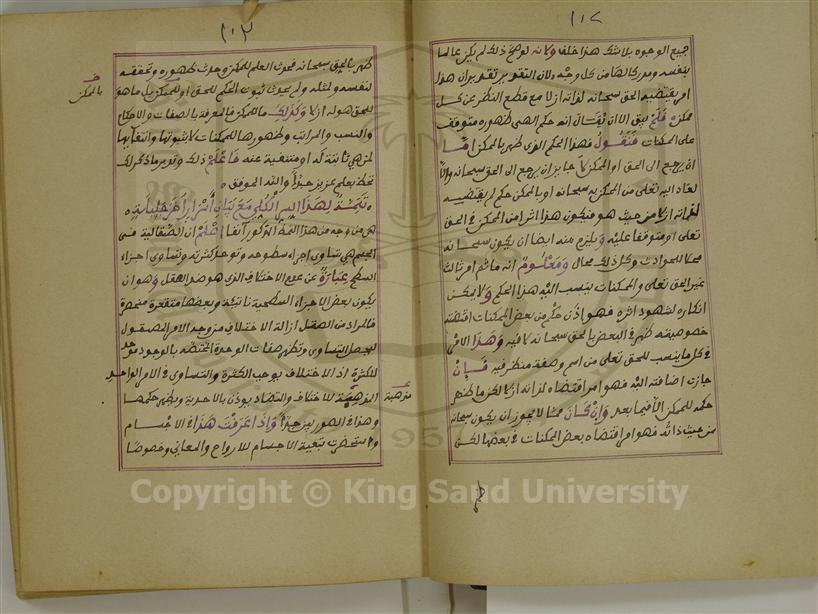 ١٠٢
جميع الوجوه بلا شك هذا خلف ولانه لو صح ذلك لم يكن عالما
بنفسه ومدركا لها من كل وجه ولان التقدير تقدير ان هذا
امر يقتضيه الحق سبحانه لذاته ازلا مع قطع النظر عن كل
ممكن فلم يبق الا ان يقال انه حكم الهي ظهوره متوقف
على الممكنات فنقول فهذا الحكم الذي ظهر بالممكن اما
ان يرجع الى الحق او الممكن لا جايز ان يرجع الى الحق سبحانه والا
لعاد اليه تعالى من الممكن به سبحانه او بالممكن حكم لم يقتضيه
لذاته ازلا من حيث هو فيكون هذا اثرا من الممكن في الحق
تعالى او متوقفا عليه ويلزم منه ايضا ان يكون سبحانه
محلا للحوادث وكل ذلك محال ومعلوم انه ما ثم امر ثالث
غير الحق تعالى والممكنات ينسب اليه هذا الحكم ولا يمكن
انكاره لشهود اثره فهو اذن حكم من بعض الممكنات اقتضته
خصوصيته ظهر في البعض بالحق سبحانه لا فيه وهذا الامر
في كل ما ينسب للحق تعالى من اسم وصفة منظر فيه فان
جازت اضافته اليه فهو امر اقتضاه لذاته ازلا لكن ما ظهر
حكمه للممكن الا فيما بعد وان كان مما لا يجوز ان يكون سبحانه
من حيث ذاته فهو امر اقتضاه بعض الممكنات في بعضها لكن
ظهر
١٠٣
ظهر بالحق سبحانه فحدث العلم للممكن وحدث ظهوره وتحققه
لنفسه ولمثله ولم يحدث ثبوت الحكم للحق او للممكن بل ما هو
بالممكن
للحق هو له ازلا وكذلك ما للممكن فالمعرفة بالصفات والاحكام
والنسب والمراتب وظهورها للممكنات لا بثبوتها وانتفائها
لمن هي ثابتة له او منتفية عنه فاعلم ذلك وتدبر ما ذكر لك
تحظ بعلم عزيز جدا والله الموفق
تتمة لهذا السر الكلي مع بيان اسرار اخر جليلة
هي من وجه من هذا النمط المذكور آنفا اعلم ان الصقالية في
الجسم هي تساوي اجزاء سطوحه وتوحد كثرته وتساوي اجزاء
السطح عبارة عن عدم الاختلاف الذي هو ضد الصقل وهو ان
يكون بعض الاجزاء السطحية ناتئة وبعضها متقعرة منحصرة
فالمراد من الصقل ازالة الاختلاف من وجه الامر المصقول
ليحصل التساوي وتظهر صفات الوحدة المختصة بالوجود موحد
للكثرة اذ الاختلاف يوجب الكثرة والتساوي في الامر الواحد
مذهبة
المذهبة للاختلاف والتضاد يؤذن بالاحدية ويظهر حكمها
وهذا في الصور بين جدا واذا عرفت هذا في الاجسام
واستحضرت تبعية الاجسام للارواح والمعاني وخصوصا
Copyright © King Saud University
1957